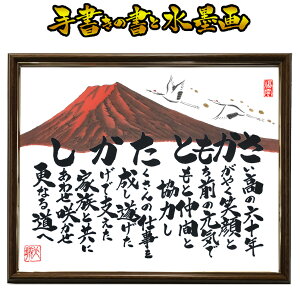 手書きの書と水墨画
さい高の六十年
かがやく笑顔と
もち前の元気で
ともと仲間と
協力し
たくさんの仕事を
成し遂げた
かげで支えた
家族と共に
しあわせ咲かせ
更なる道へ